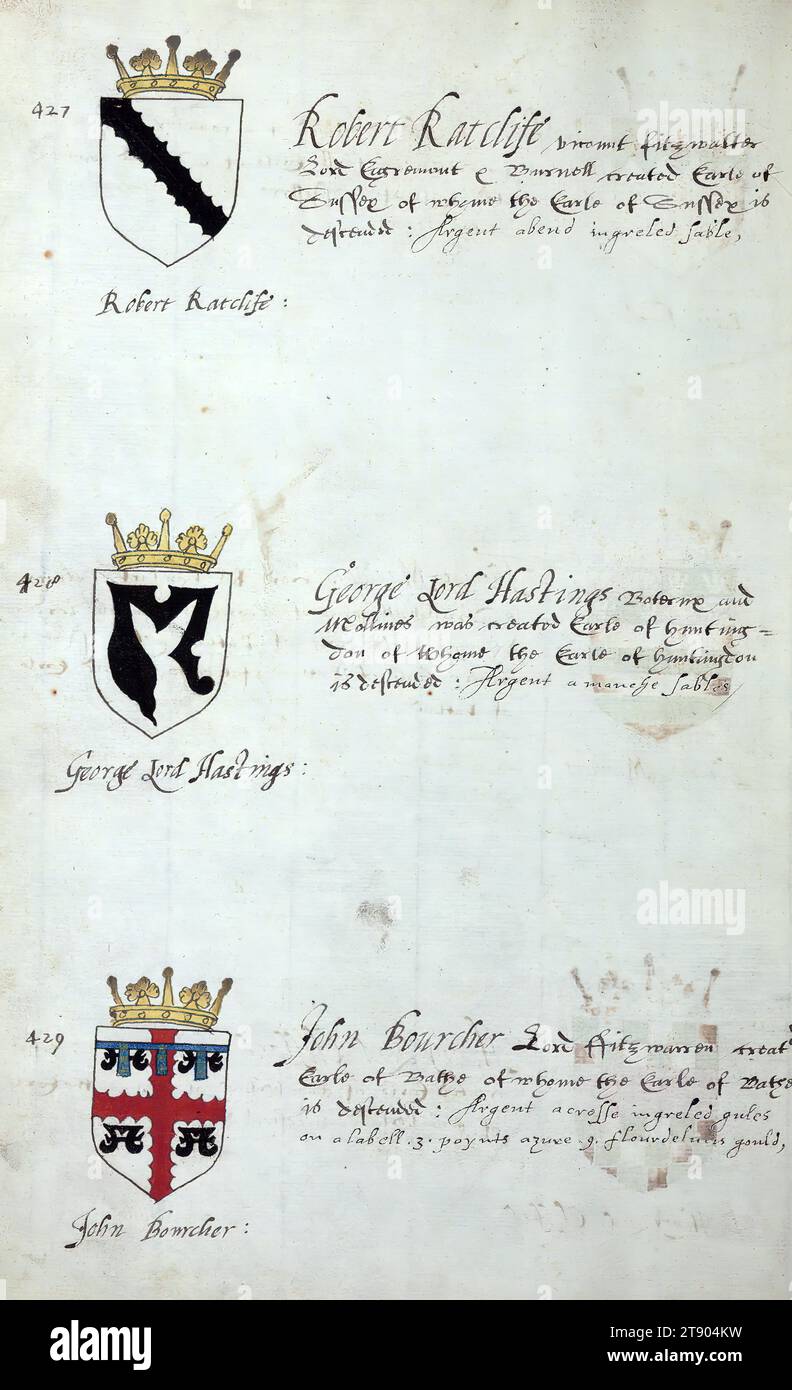 427
Robert Ratclife vicount fitzwalter
Lord Egremont & Burnell created Earle of
Sussex of whome the Earle of Sussex is
descended : Argent abend ingreled sable,
Robert Ratclife :
428
George Lord Hastings Boteraux and
Mollines was created Earle of hunting=
don of whome the Earle of huntingdon
is descended : Argent a manche sables
George Lord Hastings :
429
John Bourcher Lord ffitzwarren creat
Earle of Bathe of whome the Earle of Bathe
is descended : Argent a crosse ingreled gules
on a labell .3. poynts azure .9. flourdeluces gould,
John Bourcher :
alamy
alamy
alamy
Image ID: 2T904KW
www.alamy.com